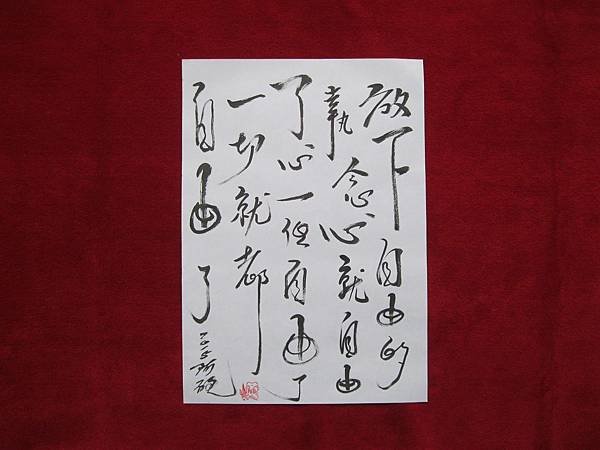 放下自由的
執念心就自由
了心一但自由了
一切就都
自由了